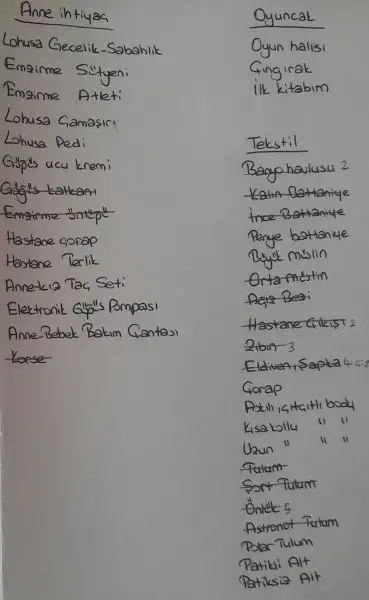 Anne ihtiyaç
Lohusa Gecelik-Sabahlık
Emzirme Sütyeni
Emzirme Atleti
Lohusa Çamaşırı
Lohusa Pedi
Göğüs ucu kremi
Göğüs kalkanı
Emzirme önlüğü
Hastane çorap
Hastane Terlik
Anne-kız Taç Seti
Elektronik Göğüs Pompası
Anne-Bebek Bakım Çantası
Korse
Oyuncak
Oyun halısı
Çıngırak
ilk kitabım
Tekstil
Banyo havlusu 2
Kalın Battaniye
İnce Battaniye
Penye battaniye
Büyük müslin
Orta müslin
Ağız Bezi
Hastane Çıkışı 2
Zıbın 3
Eldiven, Şapka 4
Çorap
Askılı, çıtçıtlı body
Kısa kollu " "
Uzun " " "
Tulum
Şort Tulum
Önlük 5
Astronot Tulum
Polar Tulum
Patikli Alt
Patiksiz Alt